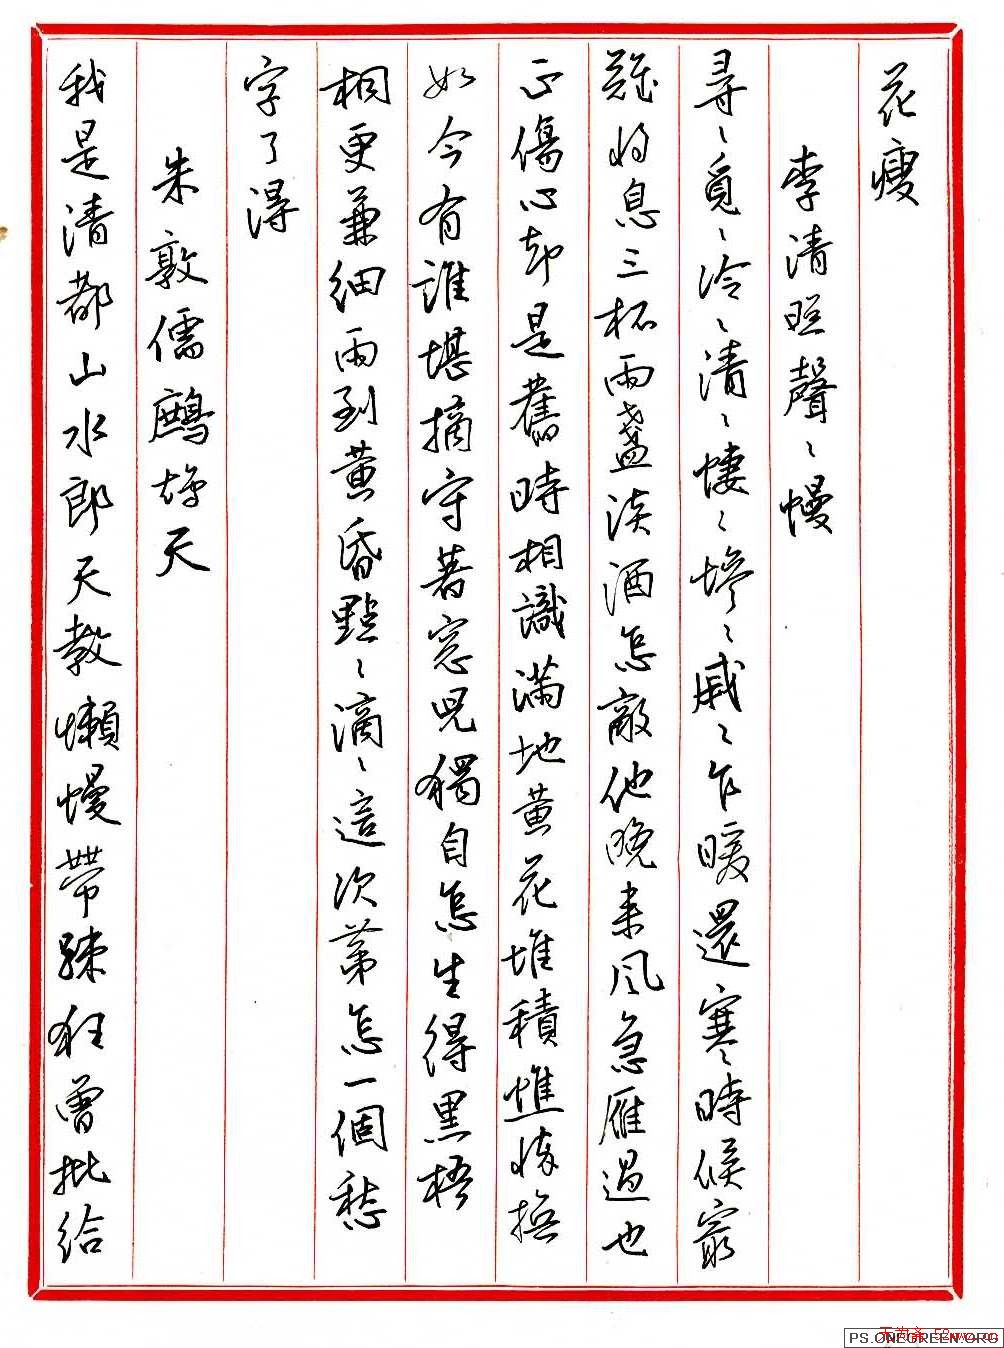 花瘦
李清照聲〻慢
尋〻覓〻冷〻清〻悽〻慘〻戚〻乍暖還寒〻時候最
難将息三杯兩盞淡酒怎敵他晚來風急雁過也
正傷心却是舊時相識滿地黃花堆積憔悴損
如今有誰堪摘守著窓兒獨自怎生得黑梧
桐更兼細雨到黃昏點〻滴〻這次第怎一個愁
字了得
朱敦儒鷓鴣天
我是清都山水郎天教懶慢帶疎狂曾批給
PS.ONEGREEN.ORG